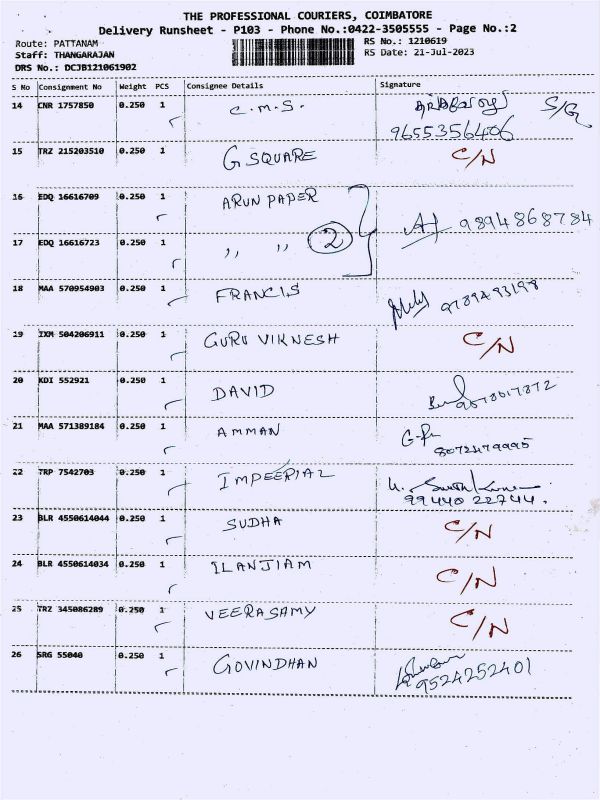 THE PROFESSIONAL COURIERS, COIMBATORE
Delivery Runsheet - P103 - Phone No.:0422-3505555 - Page No.:2
Route: PATTANAM RS No.: 1210619
Staff: THANGARAJAN RS Date: 21-Jul-2023
DRS No.: DCJB121061902
S No Consignment No Weight PCS Consignee Details Signature
14 CNR 1757850 0.250 1 C.M.S. S/G
9655356406
15 TRZ 215203510 0.250 1 G SQUARE C/N
16 EDQ 16616709 0.250 1 ARUN PAPER
9894868784
17 EDQ 16616723 0.250 1 ,, ,, 2
18 MAA 570954903 0.250 1 FRANCIS 9789493198
19 IXM 504206911 0.250 1 GURU VIKNESH C/N
20 KDI 552921 0.250 1 DAVID
21 MAA 571389184 0.250 1 AMMAN
8072479995
22 TRP 7542703 0.250 1 IMPEERIAL
99440 22744.
23 BLR 4550614044 0.250 1 SUDHA C/N
24 BLR 4550614034 0.250 1 ILANJIAM C/N
25 TRZ 345086289 0.250 1 VEERASAMY C/N
26 SRG 55040 0.250 1 GOVINDHAN
9524252401